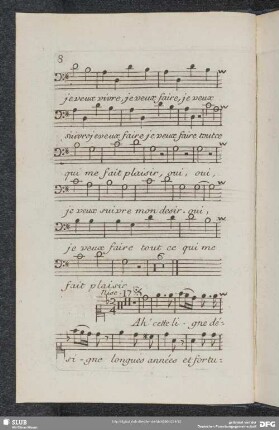 8
je veux vivre, je veux faire, je veux
suivre je veux faire je veux faire tout ce
qui me fait plaisir, oui, oui,
je veux suivre mon desir, oui,
je veux faire tout ce qui me
6
fait plaisir
Ah cette li-gne dé-
si-gne longues années et fortu-
SLUB
DFG